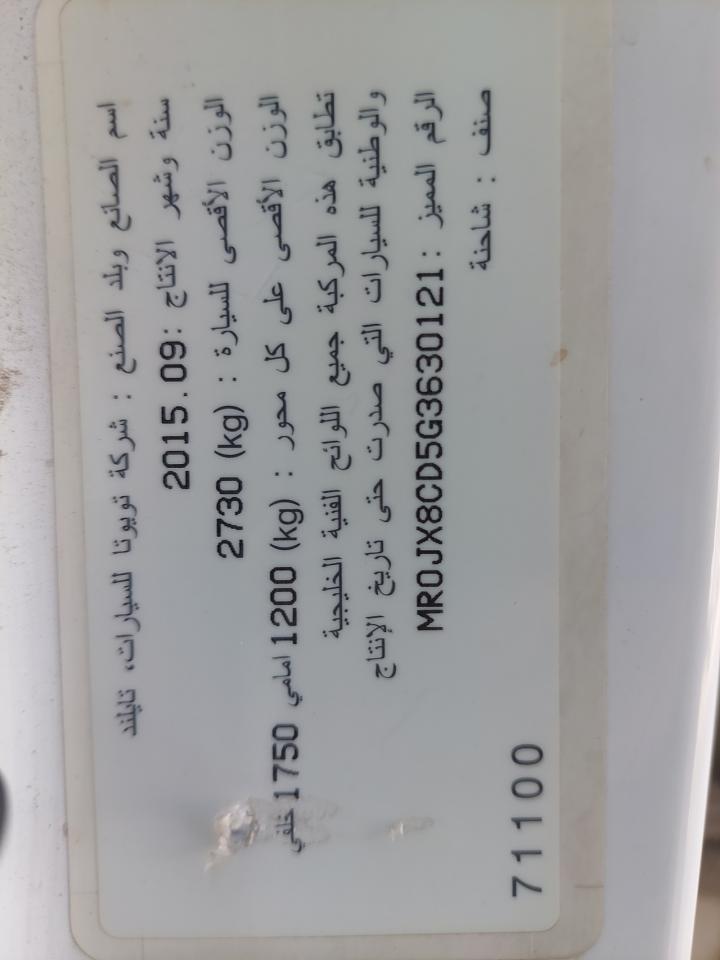 اسم الصانع وبلد الصنع : شركة تويوتا للسيارات، تايلند
سنة وشهر الانتاج :2015.09
الوزن الأقصى للسيارة : 2730 (kg)
الوزن الأقصى على كل محور : (kg) 1200 امامي 1750 خلفي
تطابق هذه المركبة جميع اللوائح الفنية الخليجية
والوطنية للسيارات التي صدرت حتى تاريخ الإنتاج
الرقم المميز :MR0JX8CD5G3630121
صنف : شاحنة
71100